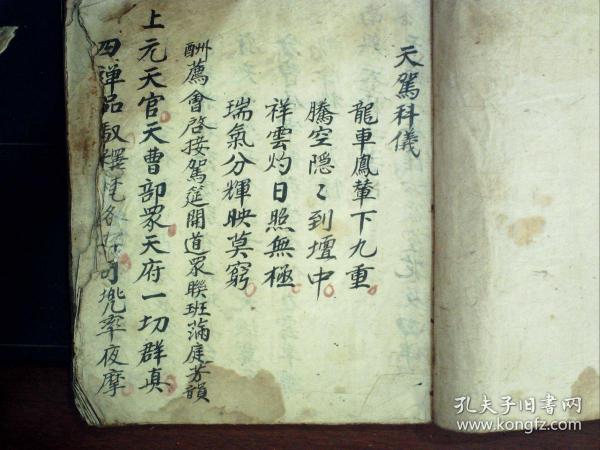 天駕科儀
龍車鳳輦下九重
騰空隱〻到壇中
祥雲灼日照無極
瑞氣分輝映莫窮
酬薦會啓接駕筵開道眾聯班滿庭芳韻
上元天官天曹部眾天府一切群真
四禅品 兜率夜摩
孔夫子旧书网
www.kongfz.com